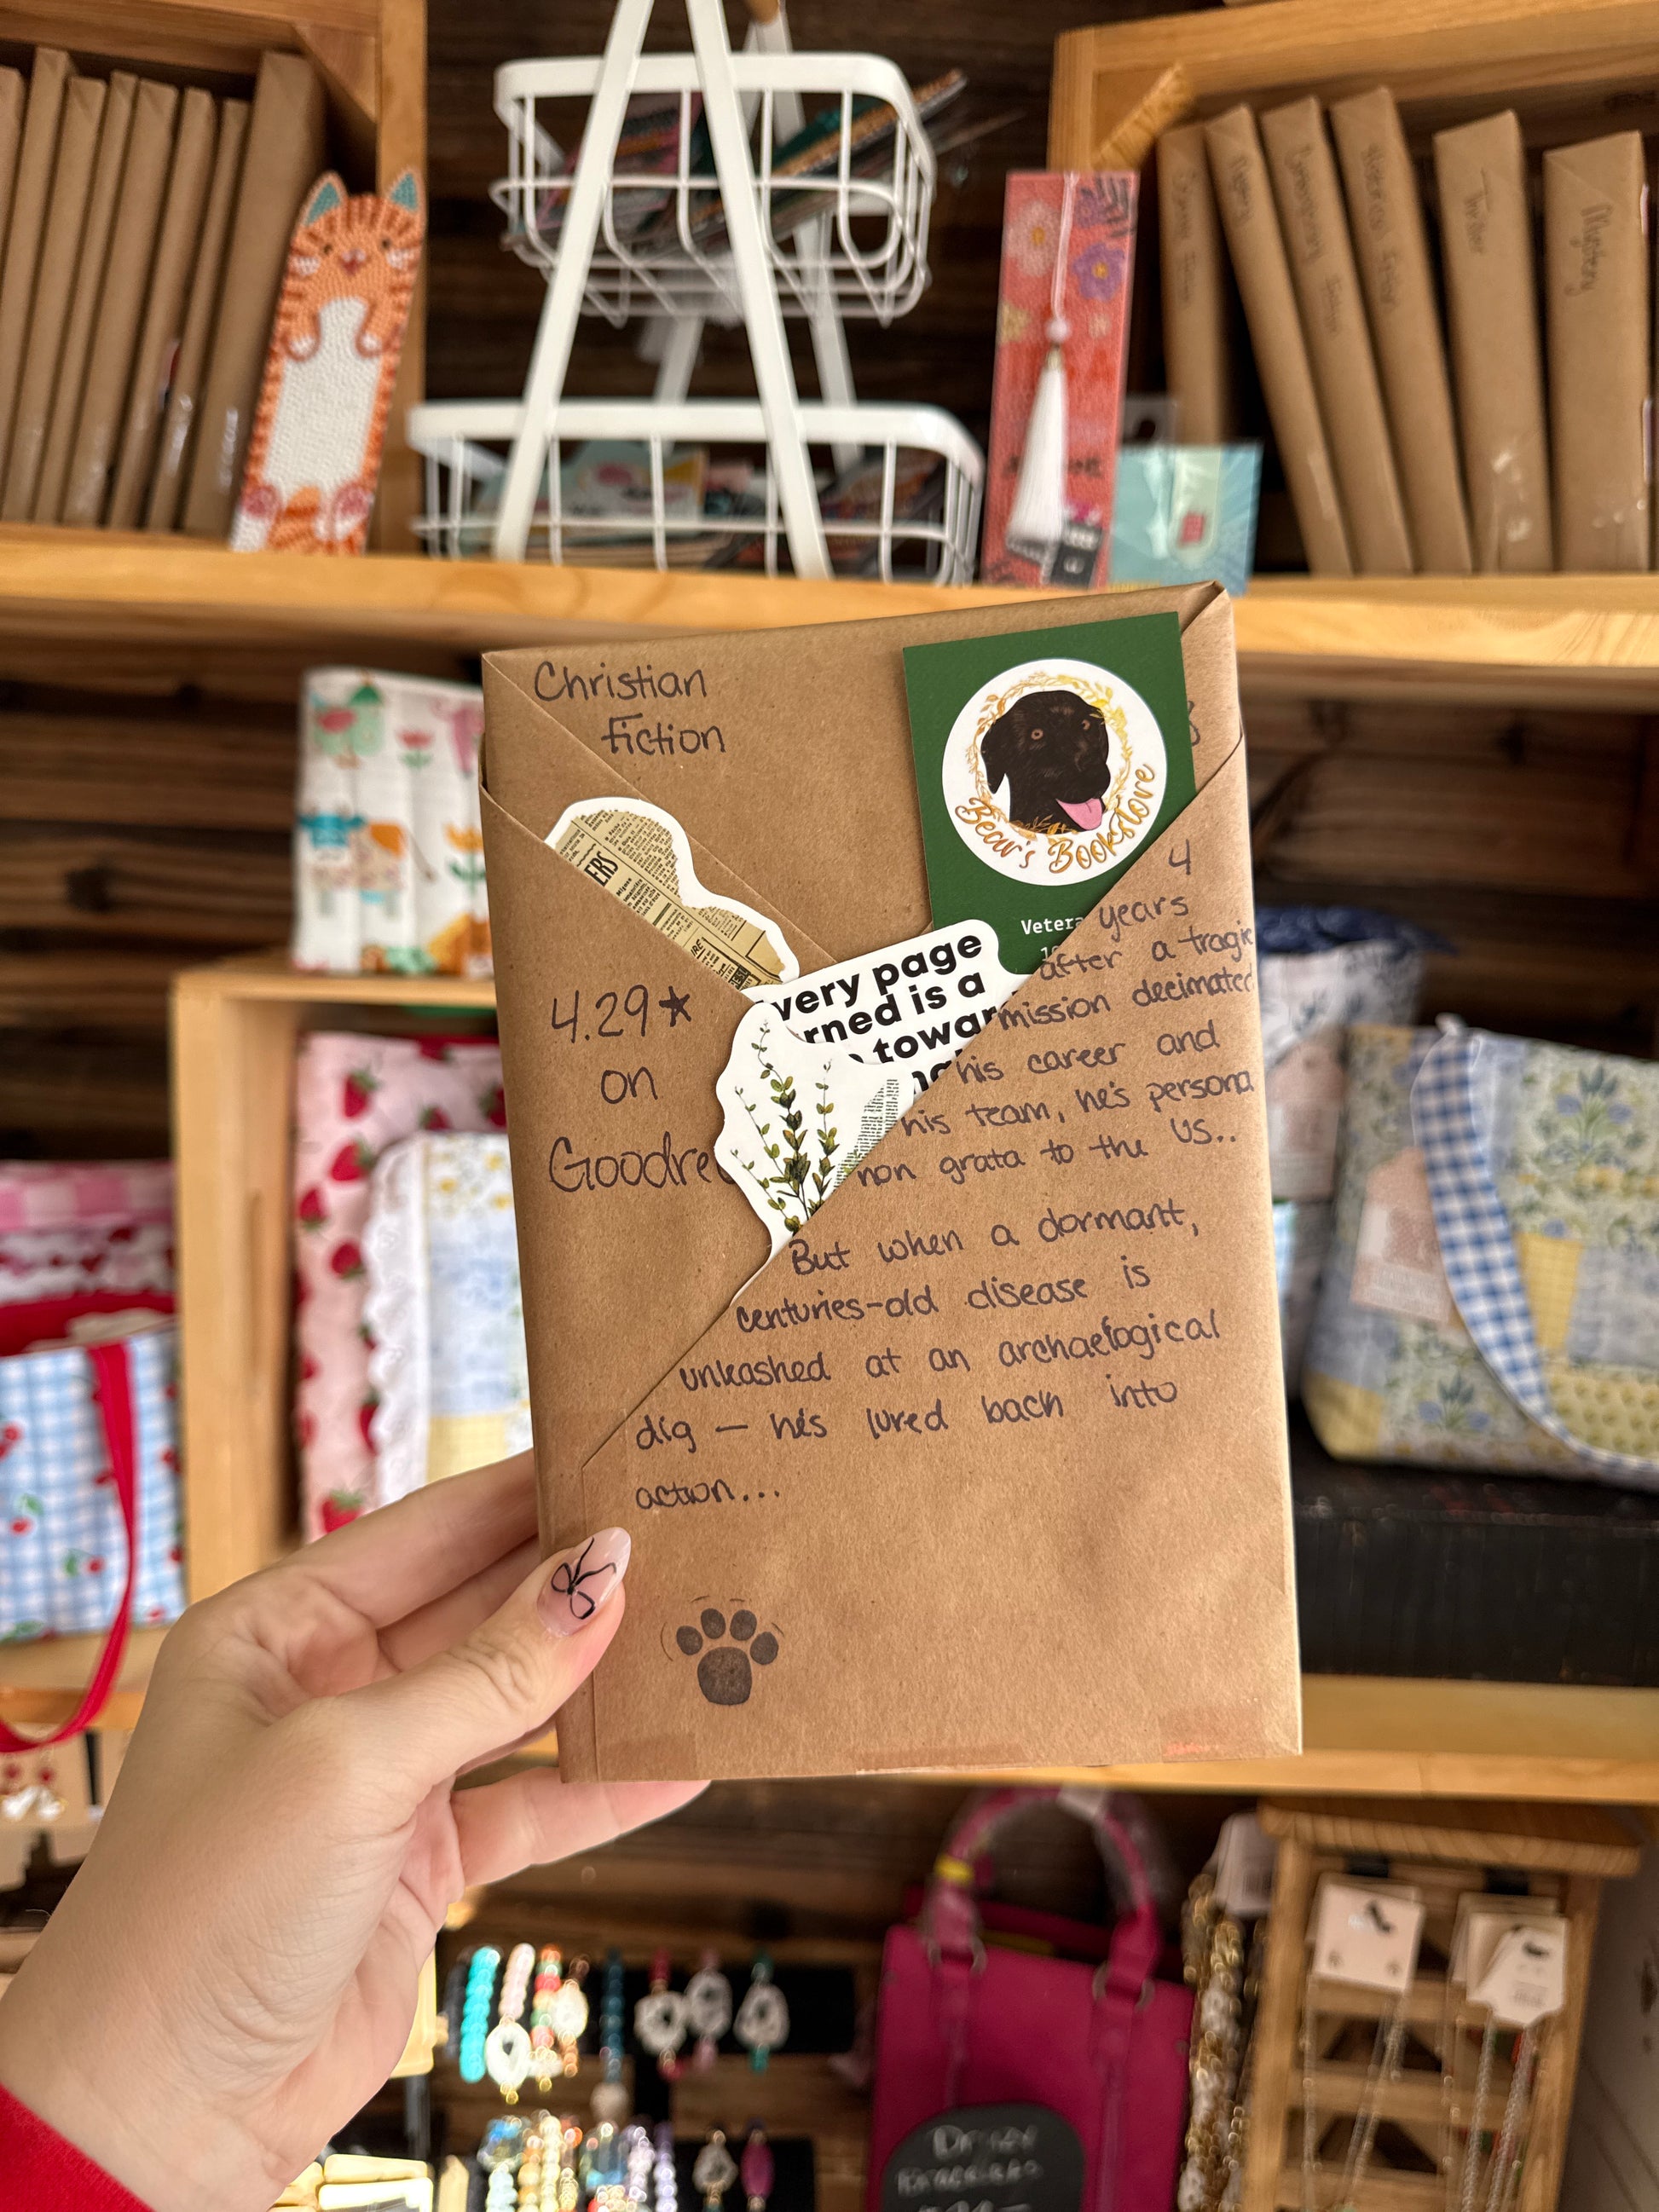 Mystery
Thriller
Christian
Fiction
Bear's Bookstore
4
years
after a tragic
mission decimated
his career and
his team, he's persona
non grata to the US..
But when a dormant,
centuries-old disease is
unleashed at an archaelogical
dig — he's lured back into
action...
4.29★
on
Goodre
ERS
very page
rned is a
towar
Vetera